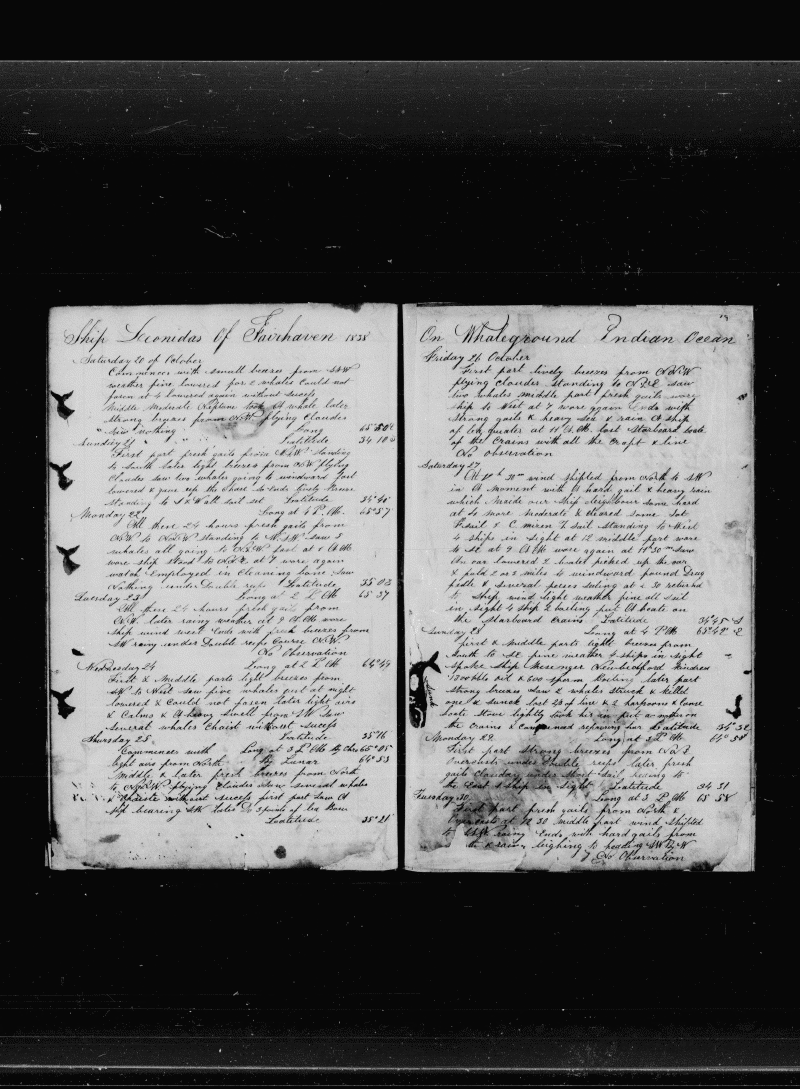 Ship Leonidas Of Fairhaven 1838
Saturday 20 of October
Commences with small breezes from SSW
weather fine lowered for 2 whales Could not
fasen at 4 lowered again without success
Middle Moderate took A whale later
Strong breezes from flying Cloudes
Saw Nothing Long 65
Sunday 21 Latitude 34 10
First part fresh gails from standing
to South later light breezes from flying
Cloudes saw two whales going to windward fast
lowered & gave up the Chase So Ends
Standing to S & W all sail set Latitude 34 40
Monday 22 Long at 4 P.M. 65 57
All these 24 hours fresh gails from
NW to standing to saw 3
whales all going to fast at 1 A M
wore ship Stood to at 7 wore again
watch Employed in Cleaning bone Saw
Nothing under Double reefs Latitude 35 02
Tuesday 23 Long at 2 P M 65 37
All these 24 hours fresh gails from
NW later rainy weather at 9 A M wore
Ship wind west Ends with fresh breezes from
SW rainy under Double reefs Course NW
No Observation
Wednesday 24 Long at 2 P M 64 49
First & Middle parts light breezes from
SW to West saw five whales just at night
lowered & Could not fasen later light airs
& Calms & A heavy swell from SW Saw
several whales Chaisd without success
Thursday 25 Latitude 35 16
Commences with Long at 3 P M By Chro 65 05
light airs from North By Lunar 64 53
Middle & later fresh breezes from North
to flying Cloudes Saw several whales
& Chaisd without success first part Saw A
Ship bearing
Latitude 35 21
On Whaleground Indian Ocean
Friday 26 October
First part lively breezes from
flying cloudes standing to saw
two whales middle part fresh gails wore
ship to West at 7 wore again Ends with
Strong gails & heavy sea & rain A ship
of lee quarter at 11 A M lost Starboard boate
of the Crains with all the Craft & line
No observation
Saturday 27
At wind shifted from North to SW
in A Moment with A hard gail & heavy rain
which Made our Ship some hard
at 20 more Moderate & Cleared some Set
Foresail & C mizen T sail Standing to West
4 ships in sight at 12 middle part wore
to SE at 9 A M wore again at 11 30 saw
An oar lowered 2 boates picked up the oar
& puld 2 or 3 miles to windward found Drug
& several peices returned
to Ship wind light weather fine all sail
in sight 4 ship 2 boiling put A boate on
the Starboard Crains Latitude 34 45
Sunday 28 Long at 4 P M 65 49
First & Middle parts light breezes from
South to SE fine weather 4 ships in sight
Spoke Ship Messenger Newbedford
1300 bbls oil & 600 sperm Boiling later part
strong breezes Saw 2 whales struck & killed
one & sunck lost 28 of line & 2 harpoons & lance
boate Stove lightly took her in put another on
the Crains & Comensed repairing our Latitude 34 32
Monday 29 Long at 3 P M 64 54
First part Strong breezes from
Overcasts under Double reefs later fresh
gails Cloudey under Short sail heading to
the East 1 ship in sight Latitude 34 31
Tuesday 30 Long at 3 P M 65 58
First part fresh gails from North &
Overcasts at 12 30 Middle part wind shifted
to rainy Ends with hard gails from
& rain leighing to heading SW By W
No Observation